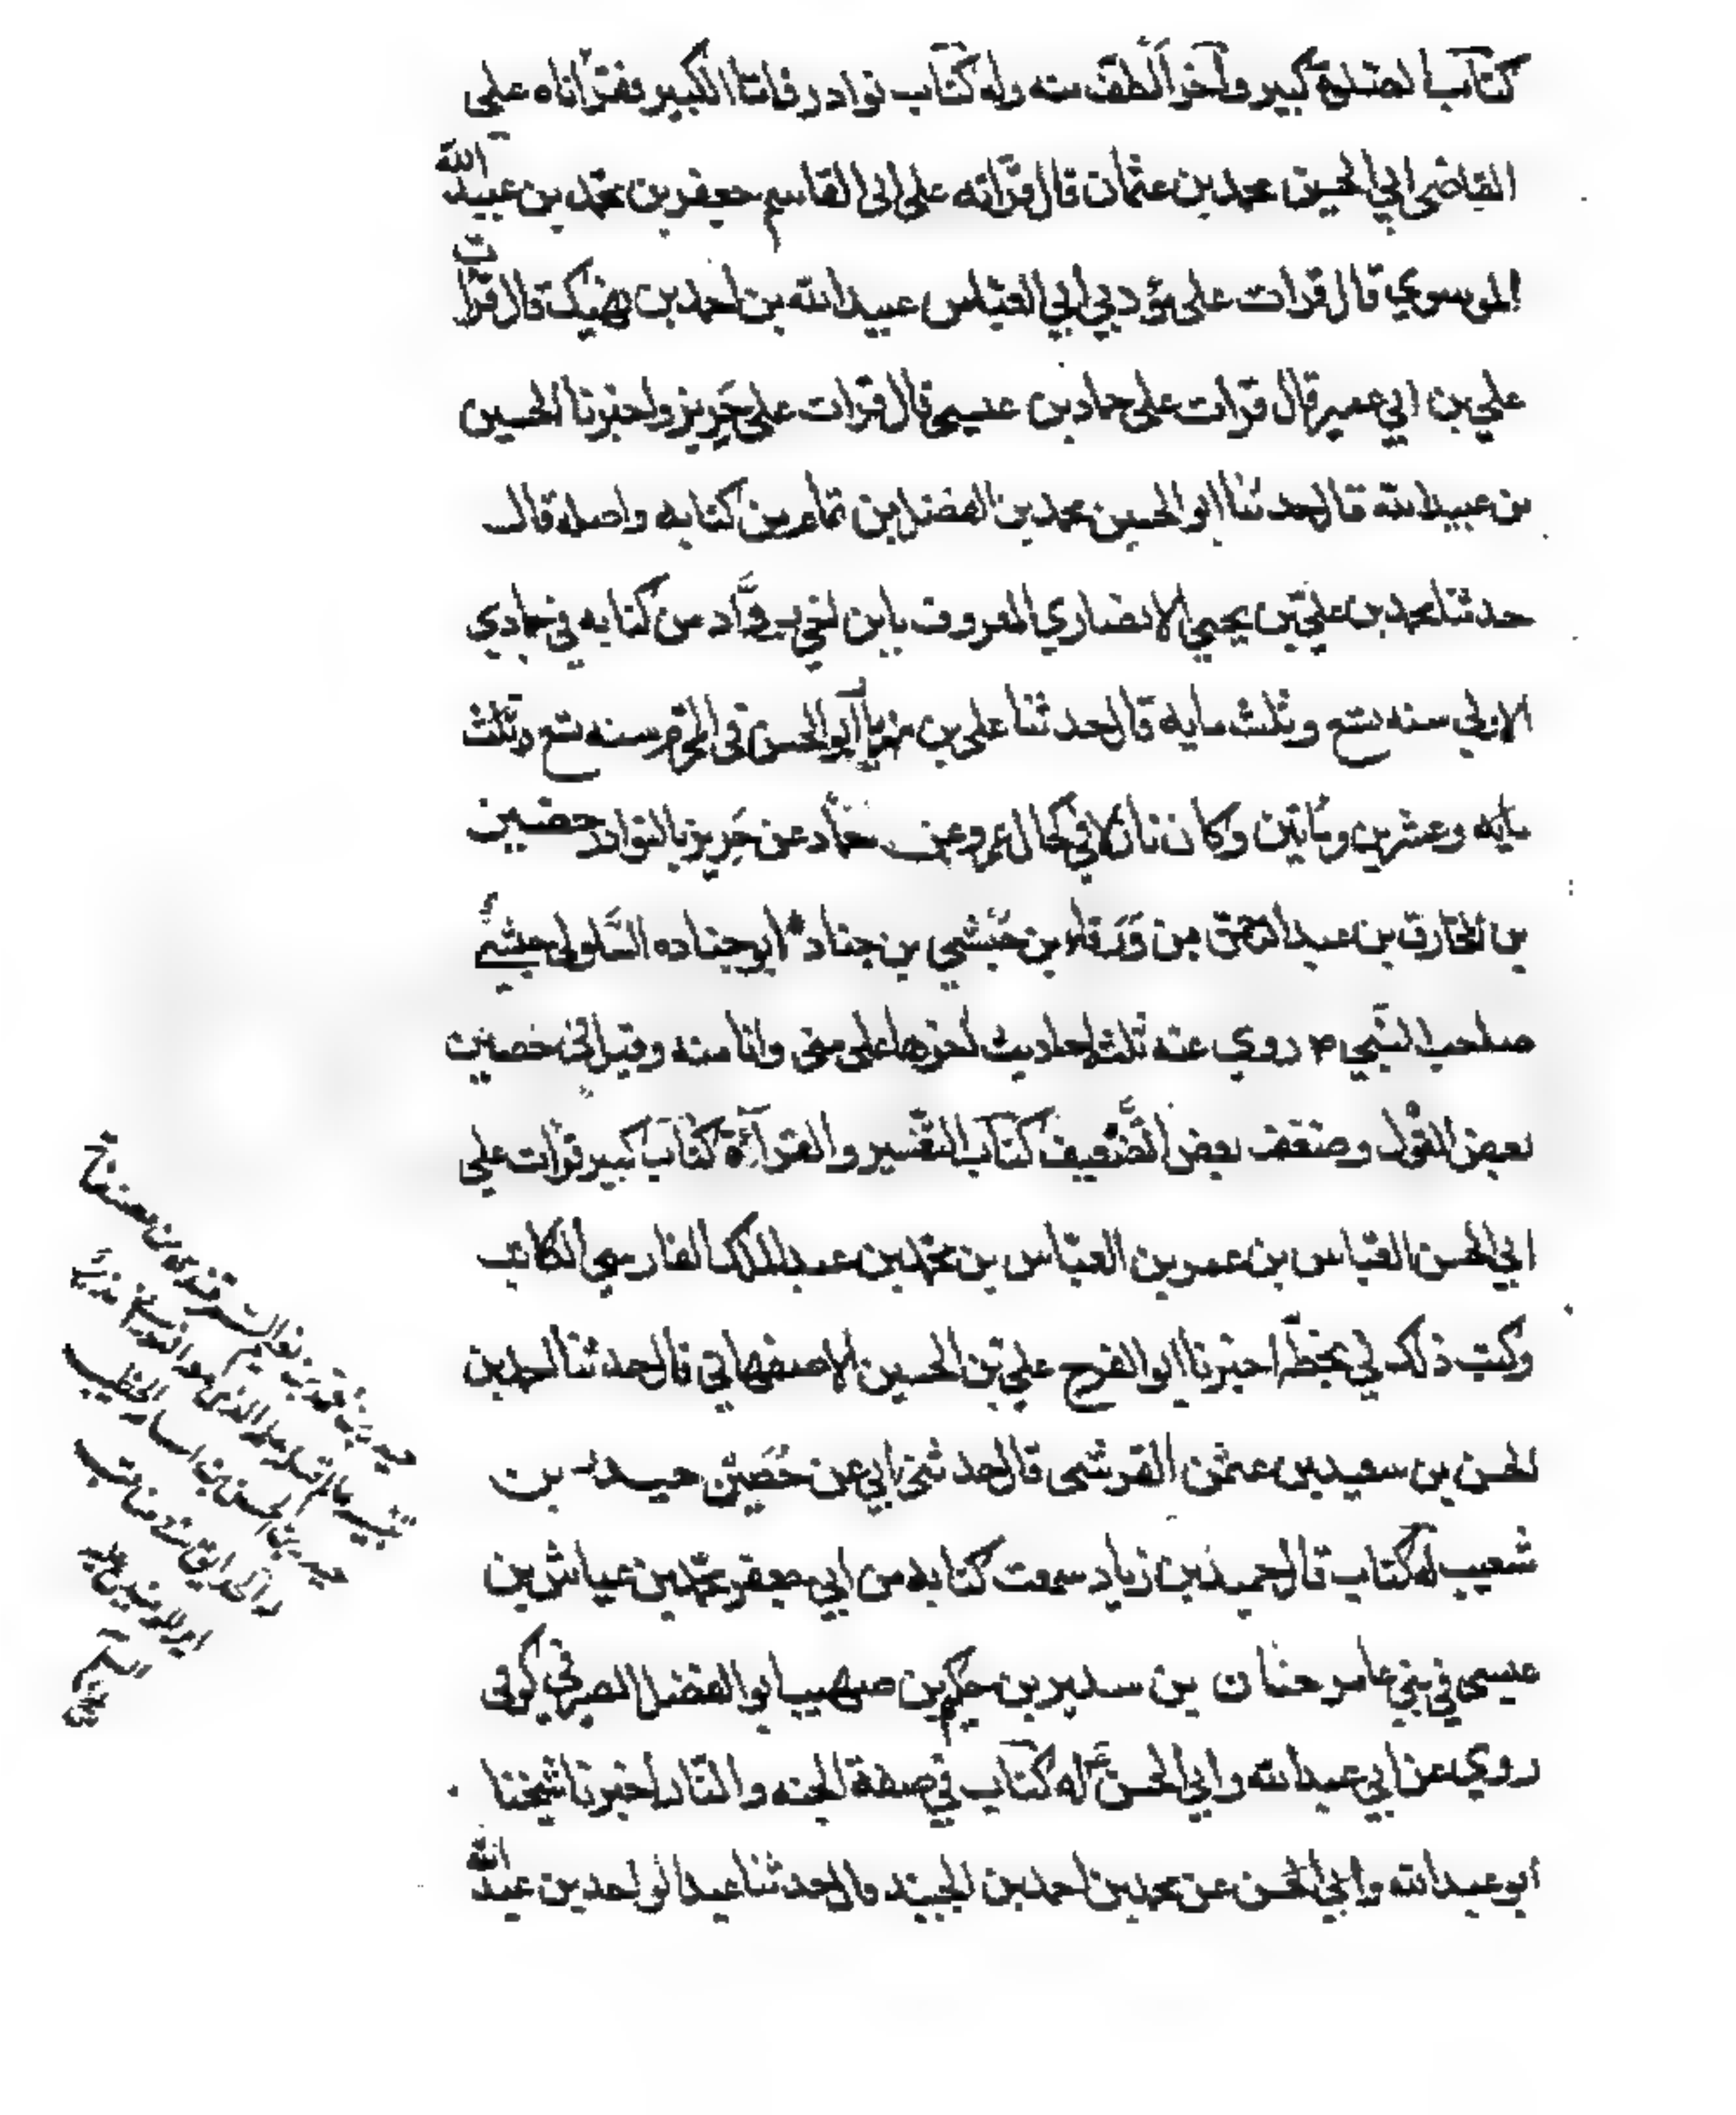 كتاب الصلوة كبير وآخر ألطف منه وله كتاب نوادر فاما الكبير فقرأناه على
القاضي ابي الحسين محمد بن عثمان قال قرأته على ابي القاسم جعفر بن محمد بن عبيد الله
الموسوي قال قرات على مؤدبي ابي العباس عبيد الله بن احمد بن نهيك قال قرأت
على بن ابي عمير قال قرات على حماد بن عيسى قال قرات على حريز واخبرنا الحسين
بن عبيد الله قال حدثنا ابو الحسين محمد بن الفضل بن تمام من كتابه واصله قال
حدثنا محمد بن علي بن يحيى الانصاري المعروف بابن اخي روّاد من كتابه في جمادي
الاولى سنه تسع وثلث مايه قال حدثنا علي بن مهزيار ابو الحسن في المحرم سنه تسع
وعشرين وماتين وكان نازلا في خان عمرو عن حماد عن حريز بالنوادر حصين
بن المخارق بن عبد الرحمن بن ورقاء بن حبشي بن جناده ابو جناده السلولي حبشي
صاحب النبي ص روي عنه ثلثة احاديث احدها على مني وانا منه وقيل في حصين
بعض القول وضعف بعض التضعيف كتاب التفسير والقرآءة كتاب كبير قرأت على
ابي الحسن العباس بن عمر بن العباس بن محمد بن عبد الملك الفارسي الكاتب
وكتب ذلك لي بخطه اخبرنا ابو الفرج علي بن الحسين الاصفهاني قال حدثنا احمد بن
الحسن بن سعيد بن عثمن القرشي قال حدثني ابي عن حصين حميد بن
شعيب له كتاب قال حميد بن زياد سمعت كتابه من ابي جعفر محمد بن عياش بن
عيسى في بني عامر حنان بن سدير بن حكيم بن صهيب ابو الفضل الصيرفي كوفي
روي عن ابي عبد الله وابي الحسن ع له كتاب في صفة الجنه والنار اخبرنا شيخنا
ابو عبد الله وابي الحسن عن محمد بن احمد بن الجنيد قال حدثنا عبد الواحد بن عبد الله